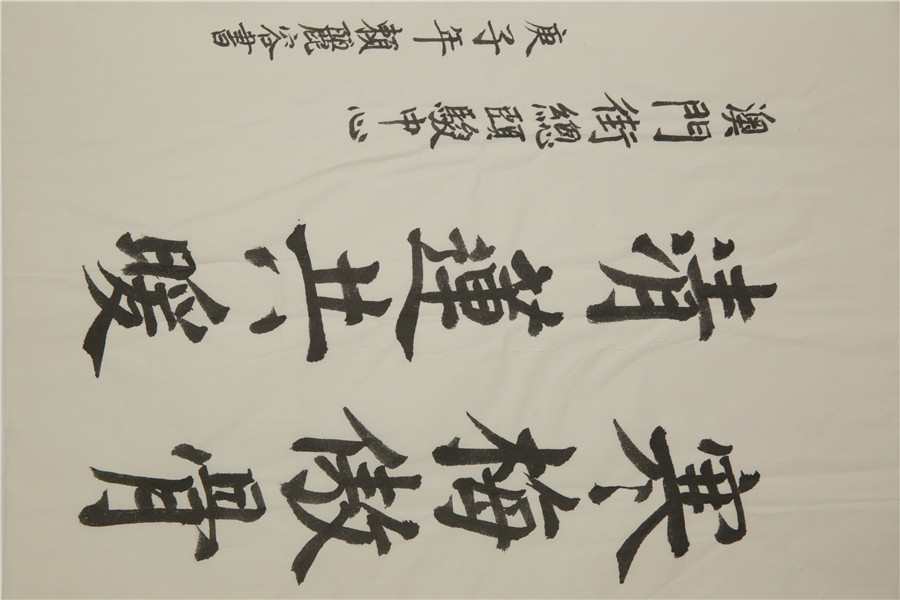 寒梅傲骨
清蓮共暖
澳門街總頤駿中心
庚子年賴麗容書